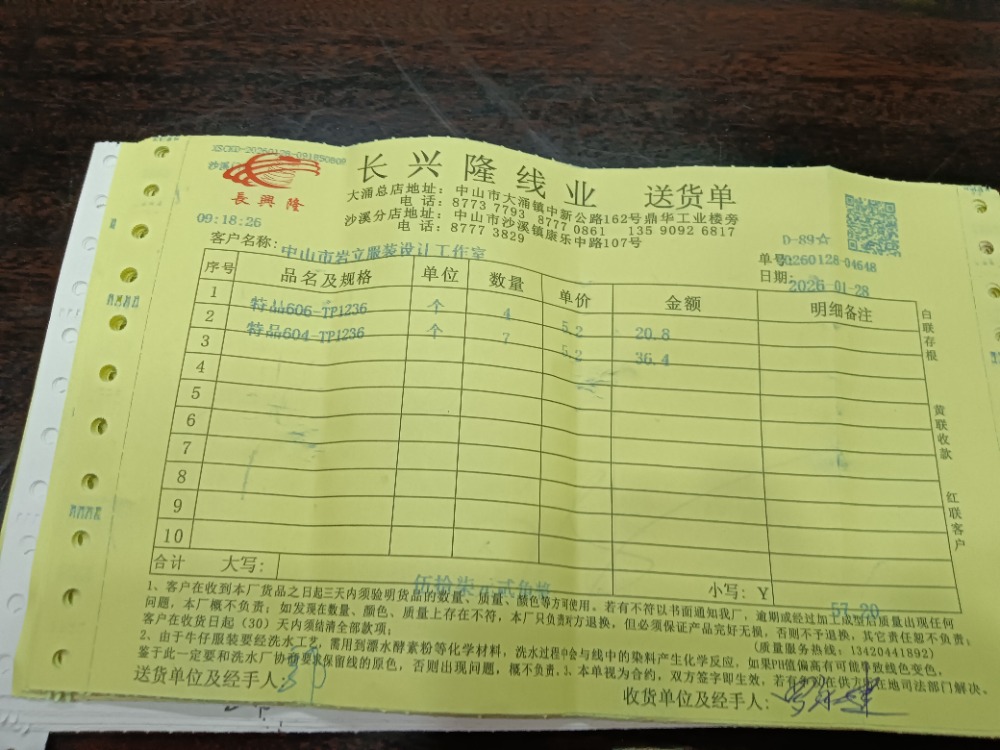 XSCKD-20260128-091850809
沙溪
長興隆
长兴隆线业 送货单
大涌总店地址：中山市大涌镇中新公路162号鼎华工业楼旁
电话：8773 7793 8777 0861 135 9092 6817
沙溪分店地址：中山市沙溪镇康乐中路107号
电话：8777 3829
09:18:26
D-89☆
客户名称：中山市岩立服装设计工作室
单号：20260128-04648
日期：2026-01-28
序号 品名及规格 单位 数量 单价 金额 明细备注
1 特品606-TP1236 个 4 5.2 20.8
2 特品604-TP1236 个 7 5.2 36.4
3
4
5
6
7
8
9
10
白联存根
黄联收款
红联客户
合计 大写： 伍拾柒元贰角整 小写：Y 57.20
1、客户在收到本厂货品之日起三天内须验明货品的数量、质量、颜色等方可使用。若有不符以书面通知我厂，逾期或经过加工成型后质量出现任何
问题，本厂概不负责；如发现在数量、颜色、质量上存在不符，本厂只负责对方退换，但必须保证产品完好无损，否则不予退换，其它责任恕不负责；
客户在收货日起（30）天内须结清全部款项；
（质量服务热线：13420441892）
2、由于牛仔服装要经洗水工艺，需用到漂水酵素粉等化学材料，洗水过程中会与线中的染料产生化学反应，如果PH值偏高有可能导致线色变色，
鉴于此一定要和洗水厂协商要求保留线的原色，否则出现问题，概不负责。3、本单视为合约，双方签字即生效，若有争议在供方所在地司法部门解决。
送货单位及经手人：
收货单位及经手人：